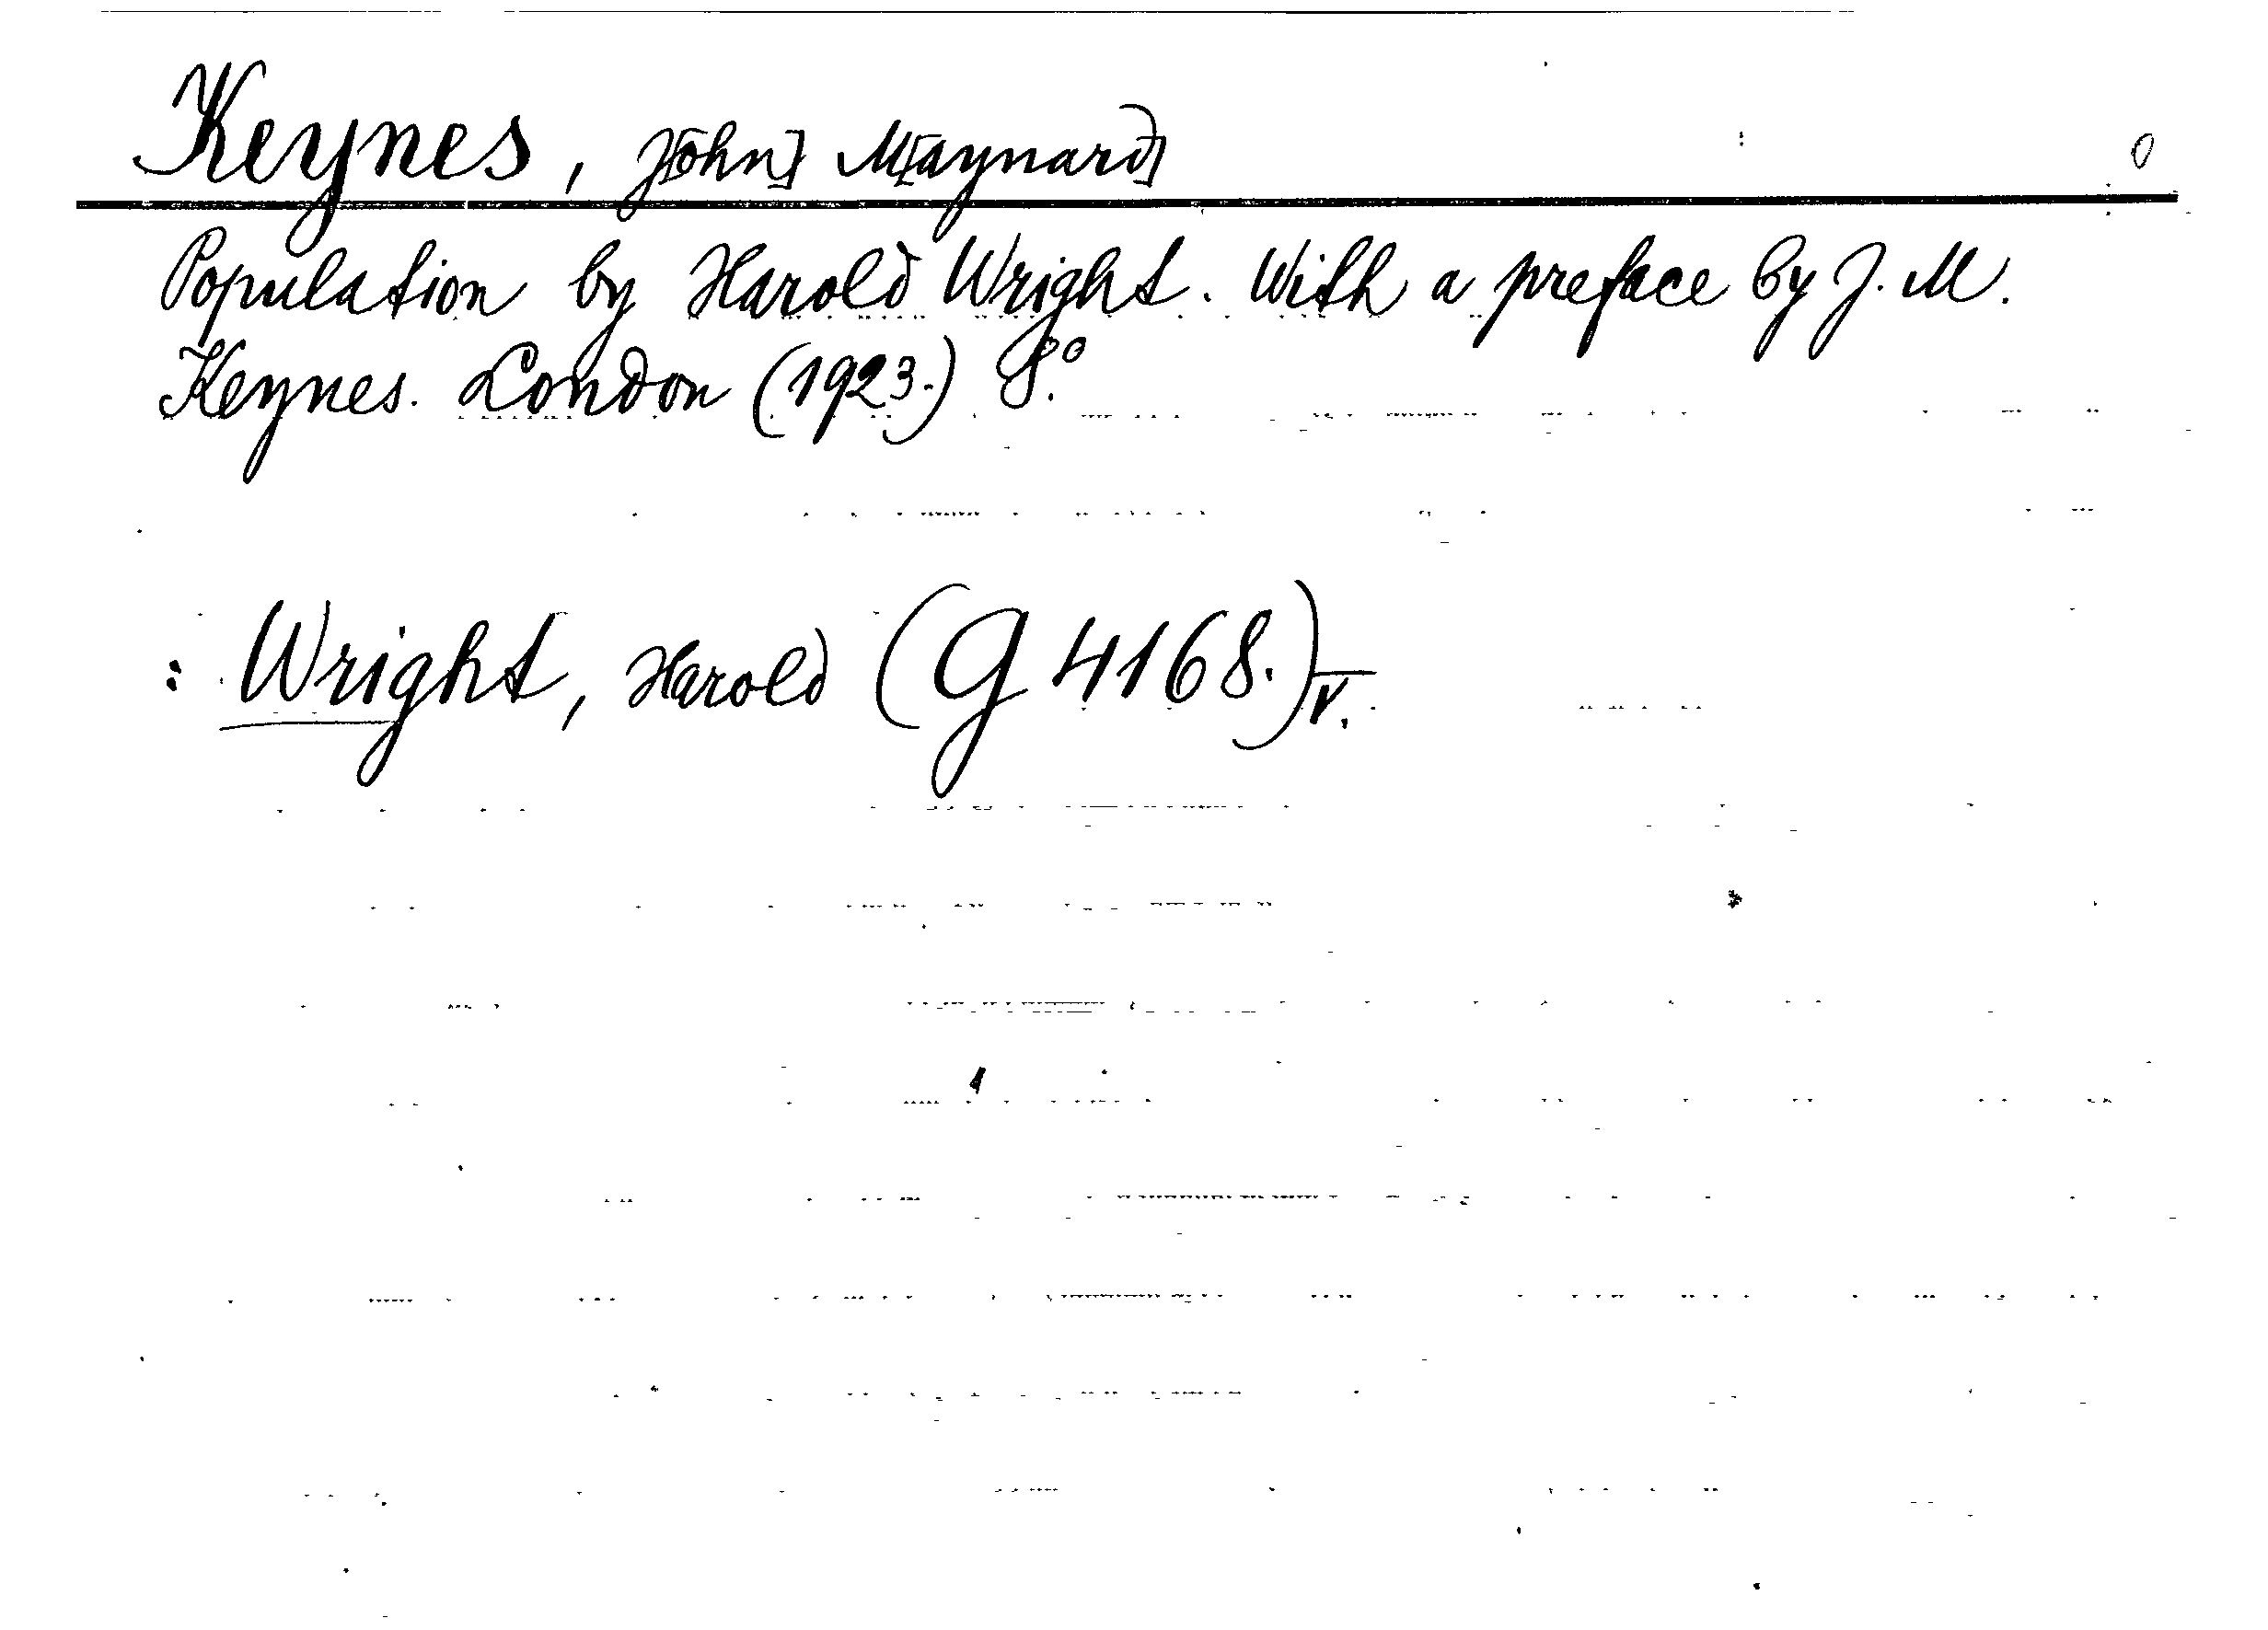 Keynes, J[ohn] M[aynard] 0
Population by Harold Wright. With a preface by J. M.
Keynes. London (1923.) 8.°
: Wright, Harold (G 4168.) V.